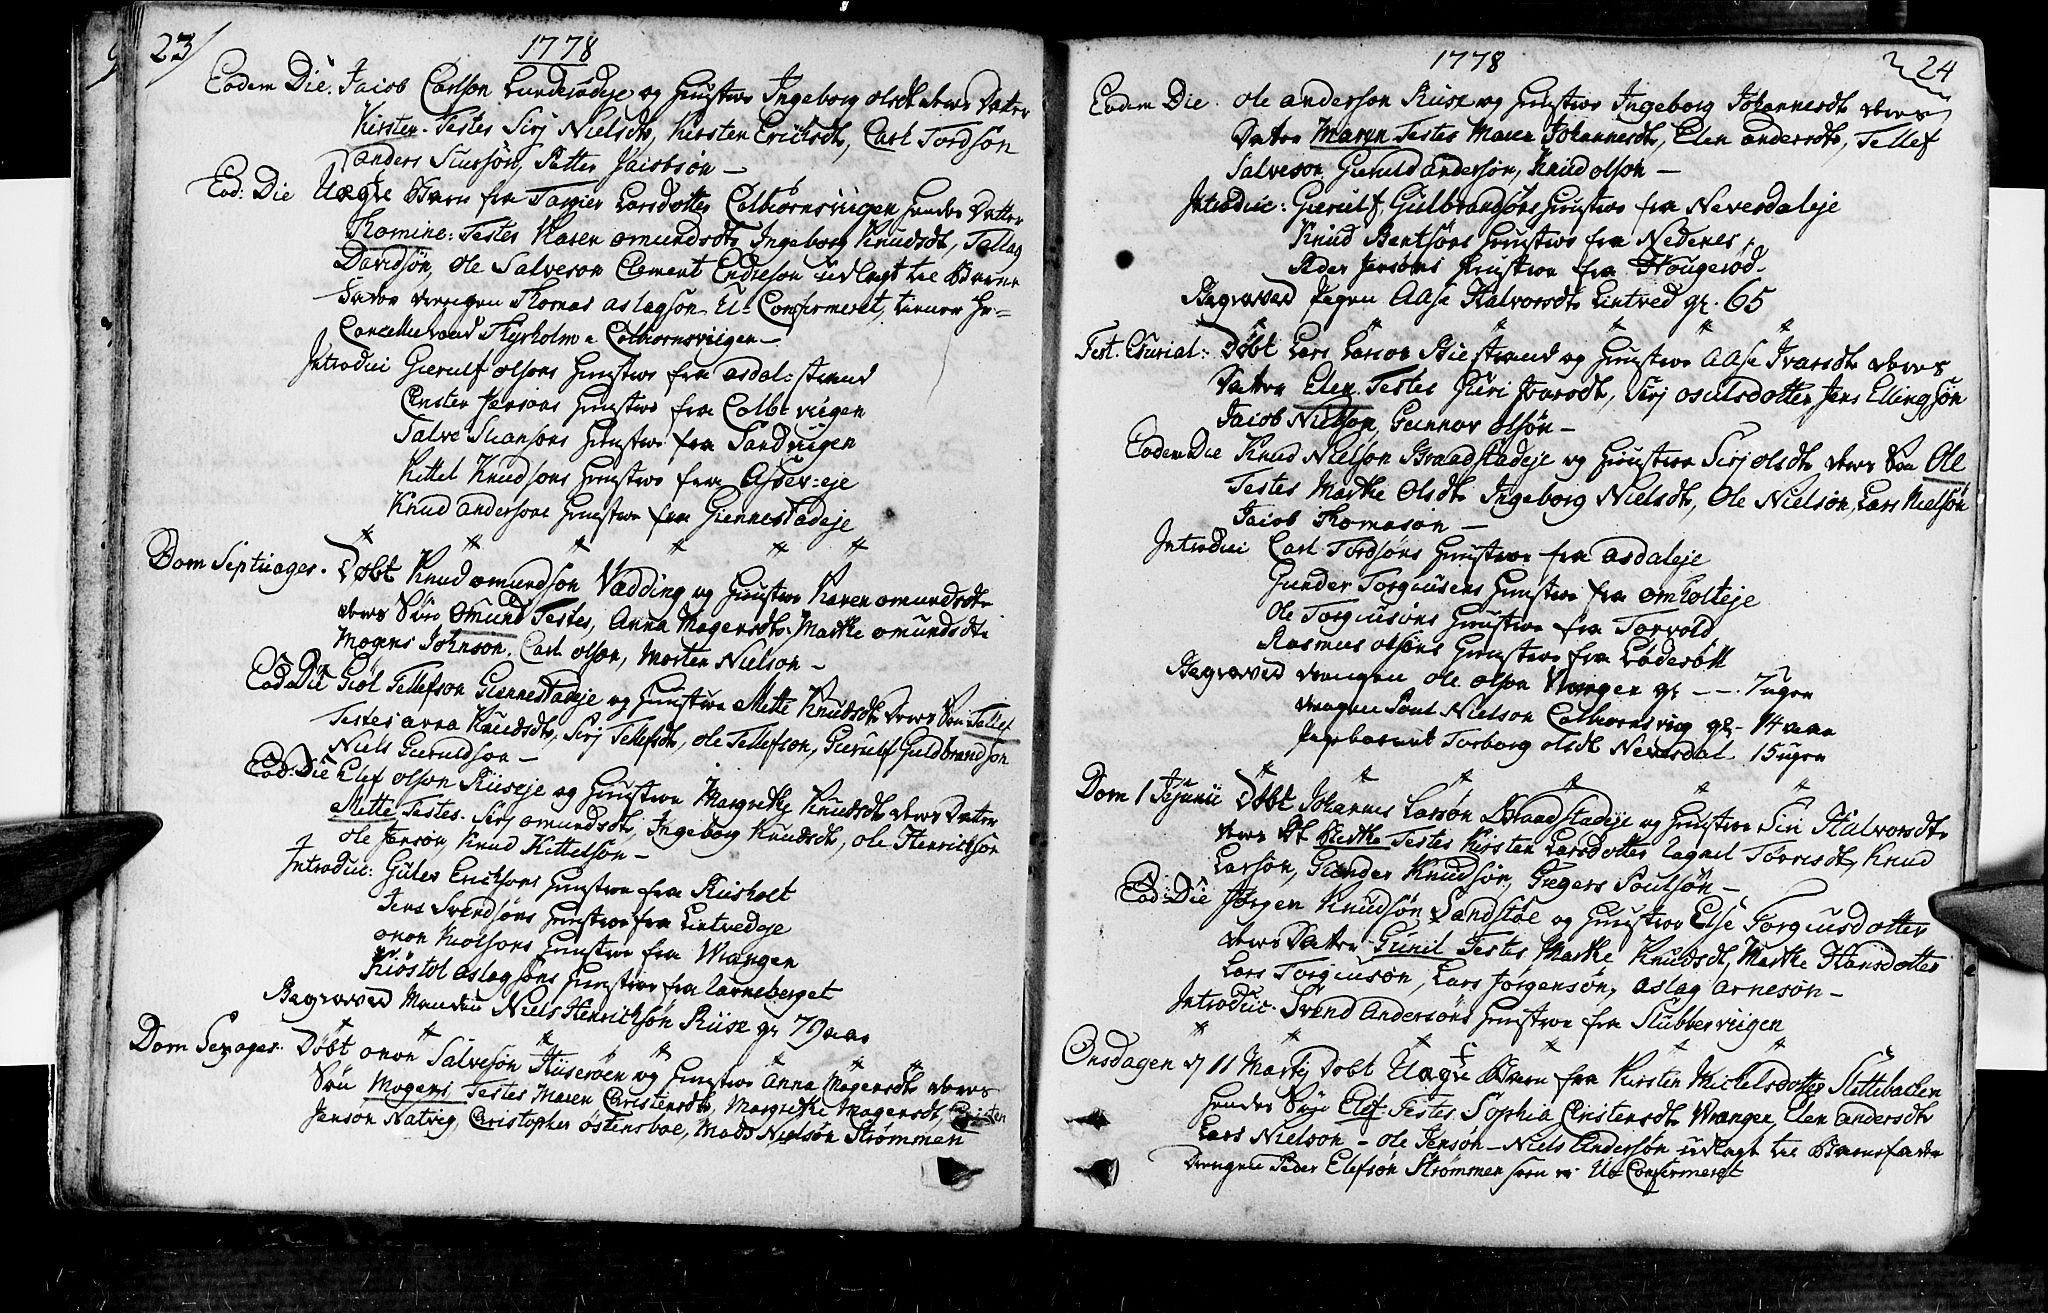 23
1778
Eodem Die. Jacob Carlson Lunderødeje og Hustroe Ingeborg Olsdt deres Datter
Kirsten. Testes Sirj Nielsdt, Kirsten Ericksdt, Carl Tordsøn
Anders Siursøn, Petter Jacobsøn —
Eod: Die Uægte Barn fra Tarjer Larsdotter Colbiornsviigen hendes Datter
Thomine: Testes Karen Omundsdt, Ingeborg Knudsdt, Tellag
Davidsøn, Ole Salveson Clement Endreson udlagt til Barne
Fader drengen Thomas Aslagson U-Confirmeret, tiener Hr=
Cancelliraad Thyrholm a Colbiornsviigen —
Introduc: Gierulf Olsons Hustroe fra Asdal=strand
Jensøns Hustroe fra Colb: viigen
Salve Hansøns Hustroe fra Sandviigen
Kittel Knudsøns Hustroe fra Asser=eje
Knud Andersons Hustroe fra Giennestadeje
Dom Septuages. Døbt Knud Omundson Vædding og Hustroe Karen Omundsdt
deres Søn Omund Testes, Anna Mogensdt, Marthe Omundsdt
Mogens Johnson. Carl Olson, Morten Nielson —
Eod: Die Giøl Tellefson Giennestadeje og Hustroe Mette Knudsdt deres Søn Tellef
Testes Anna Knudsdt, Sirj Tellefsdt, Ole Tellefson, Gierulf Guldbrandson
Niels Gierulfson —
Eod: Die Elef Olson Riiseje og Hustroe Margrethe Knudsdt deres Datter
Mette Testes. Sirj Omundsdt, Ingeborg Knudsdt, Ole Henrickson
Ole Jensøn, Knud Kittelson —
Introduc: Gutes Ericksons Hustroe fra Riisholt
Jens Svendsøns Hustroe fra Lintvedeje
Onon Hustroe fra Wrangen
Kiøstol Aslagsøns Hustroe fra Tarneberget
Begraved Manden Niels Henricksøn Riise gl 79 aar
Dom Sexages. Døbt Onon Salvesøn Huserøen og Hustroe Anna Mogensdt deres
Søn Mogens Testes Maren Christensdt, Margrethe Mogensdt, Christen
Jensøn Natvig, Christopher Østensboe, Mads Nielsøn Strømmen
1778
24
Eodem Die. Ole Anderson Riise og Hustroe Ingeborg Johannesdt deres
Datter Maren Testes Maren Johannesdt, Elen Andersdt, Tellef
Salveson Gierulf Andersøn, Knud Olsøn —
Introduc: Gierulf Gulbrandsøns Hustroe fra Neversdaleje
Knud Bentsøns Hustroe fra Nedenes,
Peder Jensøns Hustroe fra Hougerød.
Begraved Pigen Aase Halvorsdt Lintved gl. 65
Fest. Esurial: Døbt Lars Larson Biestrand og Hustroe Aase Ivarsdt deres
Datter Elen. Testes Guri Ivarsdt, Sirj Osulsdotter, Jens Ellingsøn
Jacob Nielson, Gunnar Olsøn —
Eodem Die Knud Nielson Braadstadeje og Hustroe Sirj Olsdt deres Søn Ole
Testes Marthe Olsdt, Ingeborg Nielsdt, Ole Nielson, Lars Nielsøn
Jacob Thomasøn —
Introduc Carl Tordsøns Hustroe fra Asdaleje
Gunder Torgiusens Hustroe fra Omholteje
Ole Torgiusøns Hustroe fra Torvold
Rasmus Olsøns Hustroe fra Lødesøll
Begraved drengen Ole Olson Wrangen gl — — 7 ugen
drengen Poul Nielson Colbiornsviig gl — 14 aar
Pigebarnet Torborg Olsdt Neversdal 15 ugen
Dom 1 Jejunii Døbt Johannes Larsøn Braadstadeje og Hustroe Siri Halvorsdt
deres Dt Berthe Testes Kirsten Larsdotter Tagnil Tørrisdt, Knud
Larsøn, Gunder Knudsøn, Gregers Poulsøn —
Eod: Die Jørgen Knudsøn Sandstøe og Hustroe Else Torgiusdotter
deres Datter Gunil Testes Marthe Knudsdt, Marthe Hansdotter
Lars Torgiusøn, Lars Jørgensøn, Aslag Arneson —
Introduc: Svend Andersøns Hustroe fra Stubberviigen
Onsdagen d 11 Martij Døbt Uægte Barn fra Kirsten Mickelsdotter Slettebachen
hendes Søn Elef Testes Sophia Christensdt Wrangen, Elen Andersdt
Lars Nielson — Ole Jensøn — Niels Andersøn udlagt til Barnefader
drengen Peder Elefsøn Strømmen som er U Confirmeret